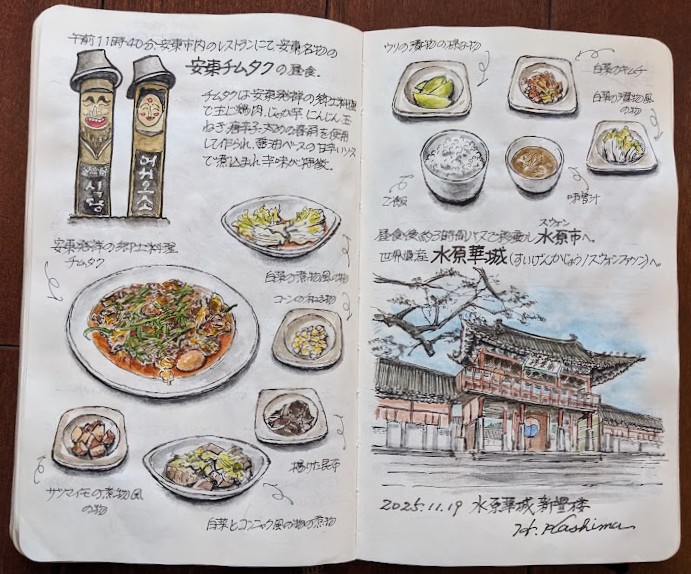 午前11時40分、安東市内のレストランにて安東名物の
安東チムタクの昼食。
チムタクは安東発祥の郷土料理
で主に鶏肉、じゃが芋、にんじん、玉
ねぎ、唐辛子、太めの春雨を使用
して作られ、醤油ベースの甘辛いソース
で煮込まれ辛味が特徴。
어서오소
식당
安東発祥の郷土料理
チムタク
白菜の煮物風の物
コーンの和え物
揚げた昆布
サツマイモの煮物風
の物
白菜とコンニャク風の物の煮物
ウリの漬物の様な物
白菜のキムチ
白菜の漬物風
の物
ご飯
味噌汁
昼食後約3時間バスで移動し水原市へ。
スウォン
世界遺産 水原華城(すいげんかじょう/スウォンファソン)へ。
2025.11.19 水原華城 新豊楼
H. Kashima